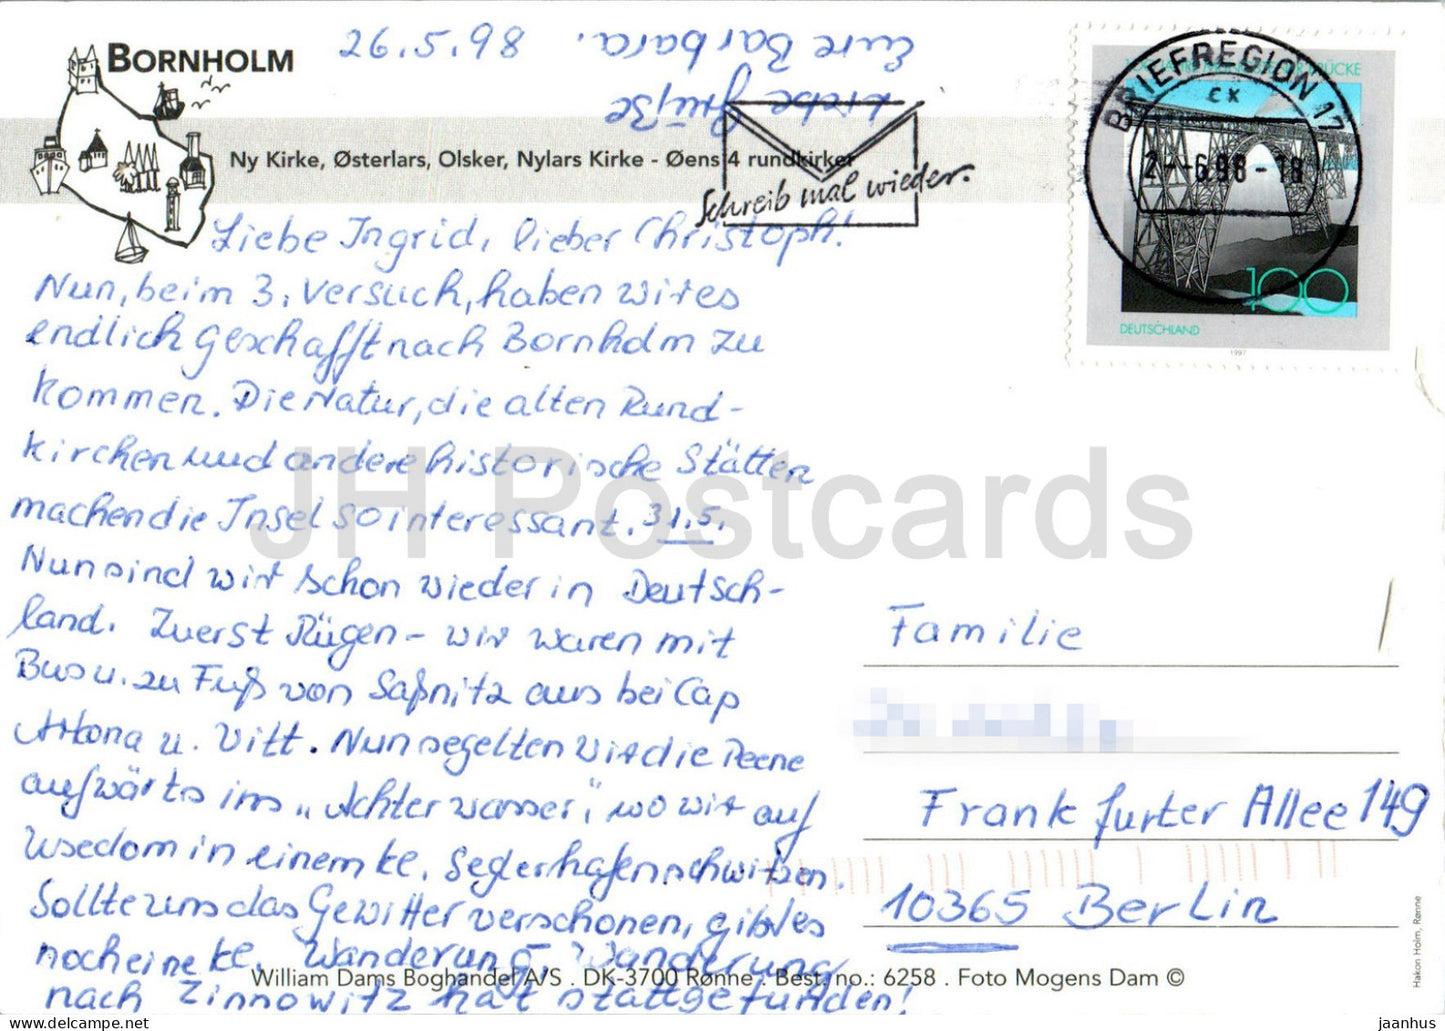 BORNHOLM
26.5.98
Ny Kirke, Østerlars, Olsker, Nylars Kirke - Øens 4 rundkirker
Liebe Ingrid, lieber Christoph!
Nun, beim 3. Versuch, haben wir es
endlich geschafft nach Bornholm zu
kommen. Die Natur, die alten Rund-
kirchen und andere historische Stätten
machen die Insel so interessant. 31.5.
Nun sind wir schon wieder in Deutsch-
land. Zuerst Rügen - wir waren mit
Bus u. zu Fuß von Saßnitz aus bei Cap
Arkona u. Vitt. Nun segelten wir die Peene
aufwärts ins „Achterwasser", wo wir auf
Usedom in einem kl. Seglerhafen schwitzen.
Sollte uns das Gewitter verschonen, gibt es
noch eine kl. Wanderung Wanderung
nach Zinnowitz hat stattgefunden!
Liebe Grüße
Eure Barbara.
Schreib mal wieder.
BRIEFREGION 17
cx
2--6.98-18
BRÜCKE
100
DEUTSCHLAND
1997
Familie
Frankfurter Allee 149
10365 Berlin
William Dams Boghandel A/S . DK-3700 Rønne . Best. no.: 6258 . Foto Mogens Dam ©
Hakon Holm, Rønne
JH Postcards
jaanhus